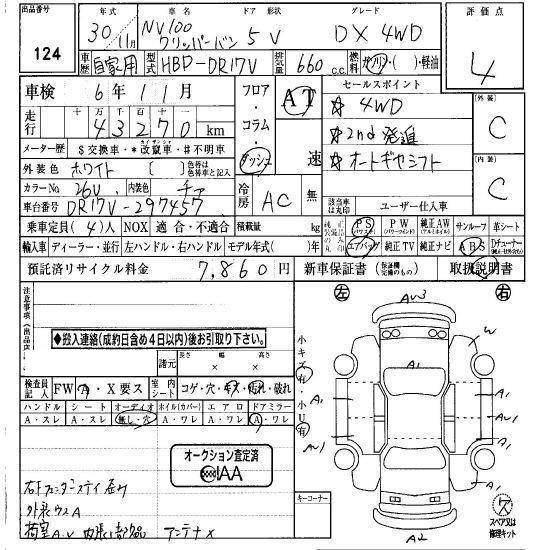 出品番号 124
年式 30年11月
車名 NV100 クリッパーバン
ドア 形状 5 V
グレード DX 4WD
評価点 4
車歴 自家用
型式 HBD-DR17V
排気量 660 c.c.
燃料 ガソリン・( )・軽油
車検 6年11月
走行 十万 万 千 百 十 一
43270 km
メーター歴 $交換車・*改竄車・#不明車
外装色 ホワイト ( ) 色替は色替車と記入
カラーNo. 26U 内装色 チャ
車台番号 DR17V-297457
フロア・コラム・ダッシュ
AT 速
冷房 AC 無
セールスポイント
☆ 4WD
☆ 2nd発進
☆ オートギヤシフト
外装 C
内装 C
該当車は丸印 ユーザー仕入車
乗車定員 (4)人 NOX 適合・不適合 積載量 kg
PS (パワステ) PW (パワーウインド) 純正AW (アルミホイル) サンルーフ 革シート
輸入車 ディーラー・並行 左ハンドル・右ハンドル モデル年式( )年
エアバッグ 純正TV 純正ナビ ABS Dチューナー
預託済リサイクル料金 7,860円
新車保証書 (保証欄完備のもの) 取扱説明書
注意事項
◆搬入連絡(成約日含め4日以内)後お引取り下さい。
諸元 長さ × 幅 × 高さ
検査員記入 FW A・X要ス
室内シート コゲ・穴・キズ・汚れ・破れ
ハンドル シート オーディオ ホイル(カバー) エアロ ドアミラー
A・スレ A・スレ 無し・穴 A・ワレ A・ワレ A・ワレ
オークション査定済
IAA
外装ウスA
荷室A.U アンテナX
小キズ有・小U有
キーコーナー
左 右
AU3
W
A1
A1
A1
AU1
AU1
A1
A2
スペア又は修理キット